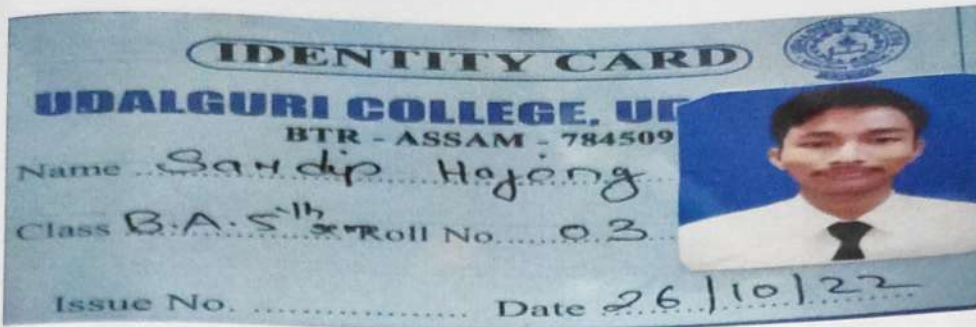 IDENTITY CARD
UDALGURI COLLEGE, UD
BTR - ASSAM - 784509
Name Sandip Hajong
Class B.A. 5th sem Roll No. 03
Issue No. .................. Date 26/10/22